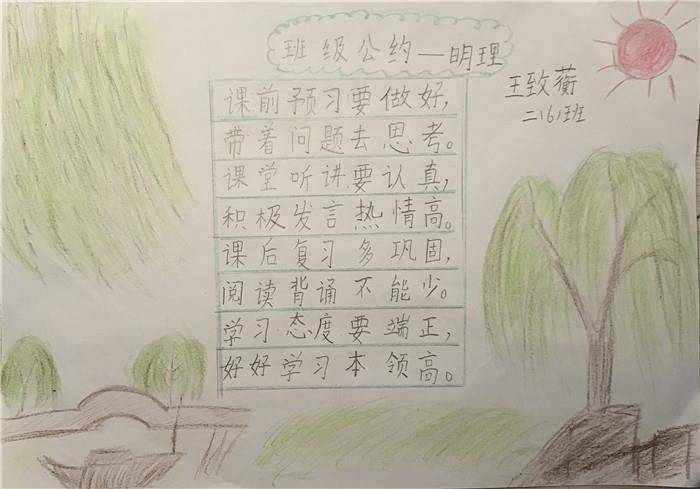 班级公约—明理
王致蘅
二(6)班
课前预习要做好，
带着问题去思考。
课堂听讲要认真，
积极发言热情高。
课后复习多巩固，
阅读背诵不能少。
学习态度要端正，
好好学习本领高。